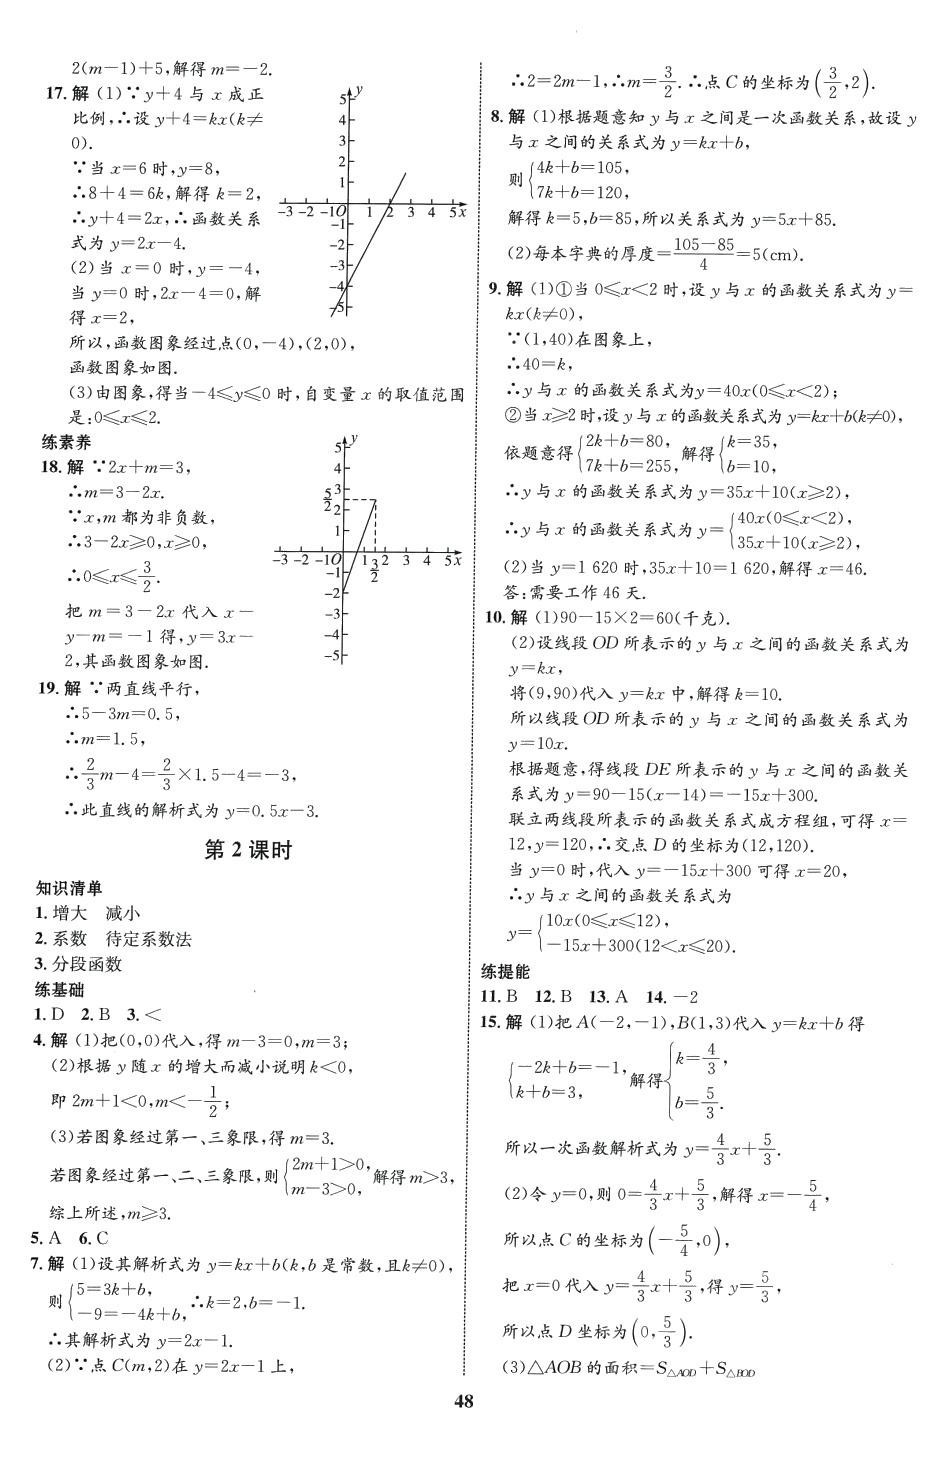 2(m−1)+5,解得 m=−2.
17. 解 (1)∵y+4 与 x 成正
比例,∴设 y+4=kx(k≠
0).
∵当 x=6 时,y=8,
∴8+4=6k,解得 k=2,
∴y+4=2x,∴函数关系
式为 y=2x−4.
(2)当 x=0 时,y=−4,
当 y=0 时,2x−4=0,解
得 x=2,
所以,函数图象经过点(0,−4),(2,0),
函数图象如图.
(3)由图象,得当−4≤y≤0 时,自变量 x 的取值范围
是:0≤x≤2.
练素养
18. 解 ∵2x+m=3,
∴m=3−2x.
∵x,m 都为非负数,
∴3−2x≥0,x≥0,
∴0≤x≤3/2.
把 m=3−2x 代入 x−
y−m=−1 得,y=3x−
2,其函数图象如图.
19. 解 ∵两直线平行,
∴5−3m=0.5,
∴m=1.5,
∴2/3m−4=2/3×1.5−4=−3,
∴此直线的解析式为 y=0.5x−3.
第 2 课时
知识清单
1. 增大 减小
2. 系数 待定系数法
3. 分段函数
练基础
1. D 2. B 3. <
4. 解 (1)把(0,0)代入,得 m−3=0,m=3;
(2)根据 y 随 x 的增大而减小说明 k<0,
即 2m+1<0,m<−1/2;
(3)若图象经过第一、三象限,得 m=3.
若图象经过第一、二、三象限,则{2m+1>0, m−3>0, 解得 m>3,
综上所述,m≥3.
5. A 6. C
7. 解 (1)设其解析式为 y=kx+b(k,b 是常数,且k≠0),
则{5=3k+b, −9=−4k+b, ∴k=2,b=−1.
∴其解析式为 y=2x−1.
(2)∵点 C(m,2)在 y=2x−1 上,
∴2=2m−1,∴m=3/2.∴点 C 的坐标为(3/2,2).
8. 解 (1)根据题意知 y 与 x 之间是一次函数关系,故设 y
与 x 之间的关系式为 y=kx+b,
则{4k+b=105, 7k+b=120,
解得 k=5,b=85,所以关系式为 y=5x+85.
(2)每本字典的厚度=(105−85)/4=5(cm).
9. 解 (1)①当 0≤x<2 时,设 y 与 x 的函数关系式为 y=
kx(k≠0),
∵(1,40)在图象上,
∴40=k,
∴y 与 x 的函数关系式为y=40x(0≤x<2);
②当 x≥2 时,设 y 与 x 的函数关系式为 y=kx+b(k≠0),
依题意得{2k+b=80, 7k+b=255, 解得{k=35, b=10,
∴y 与 x 的函数关系式为 y=35x+10(x≥2),
∴y 与 x 的函数关系式为 y={40x(0≤x<2), 35x+10(x≥2),
(2)当 y=1 620 时,35x+10=1 620,解得 x=46.
答:需要工作 46 天.
10. 解 (1)90−15×2=60(千克).
(2)设线段 OD 所表示的 y 与 x 之间的函数关系式为
y=kx,
将(9,90)代入 y=kx 中,解得 k=10.
所以线段 OD 所表示的 y 与 x 之间的函数关系式为
y=10x.
根据题意,得线段 DE 所表示的 y 与 x 之间的函数关
系式为 y=90−15(x−14)=−15x+300.
联立两线段所表示的函数关系式成方程组,可得 x=
12,y=120,∴交点 D 的坐标为(12,120).
当 y=0 时,代入 y=−15x+300 可得 x=20,
∴y 与 x 之间的函数关系式为
y={10x(0≤x≤12), −15x+300(12<x≤20).
练提能
11. B 12. B 13. A 14. −2
15. 解 (1)把 A(−2,−1),B(1,3)代入 y=kx+b 得
{−2k+b=−1, k+b=3, 解得{k=4/3, b=5/3.
所以一次函数解析式为 y=4/3x+5/3.
(2)令 y=0,则 0=4/3x+5/3,解得 x=−5/4,
所以点 C 的坐标为(−5/4,0),
把 x=0 代入 y=4/3x+5/3,得 y=5/3,
所以点 D 坐标为(0,5/3).
(3)△AOB 的面积=S△AOD+S△BOD
48